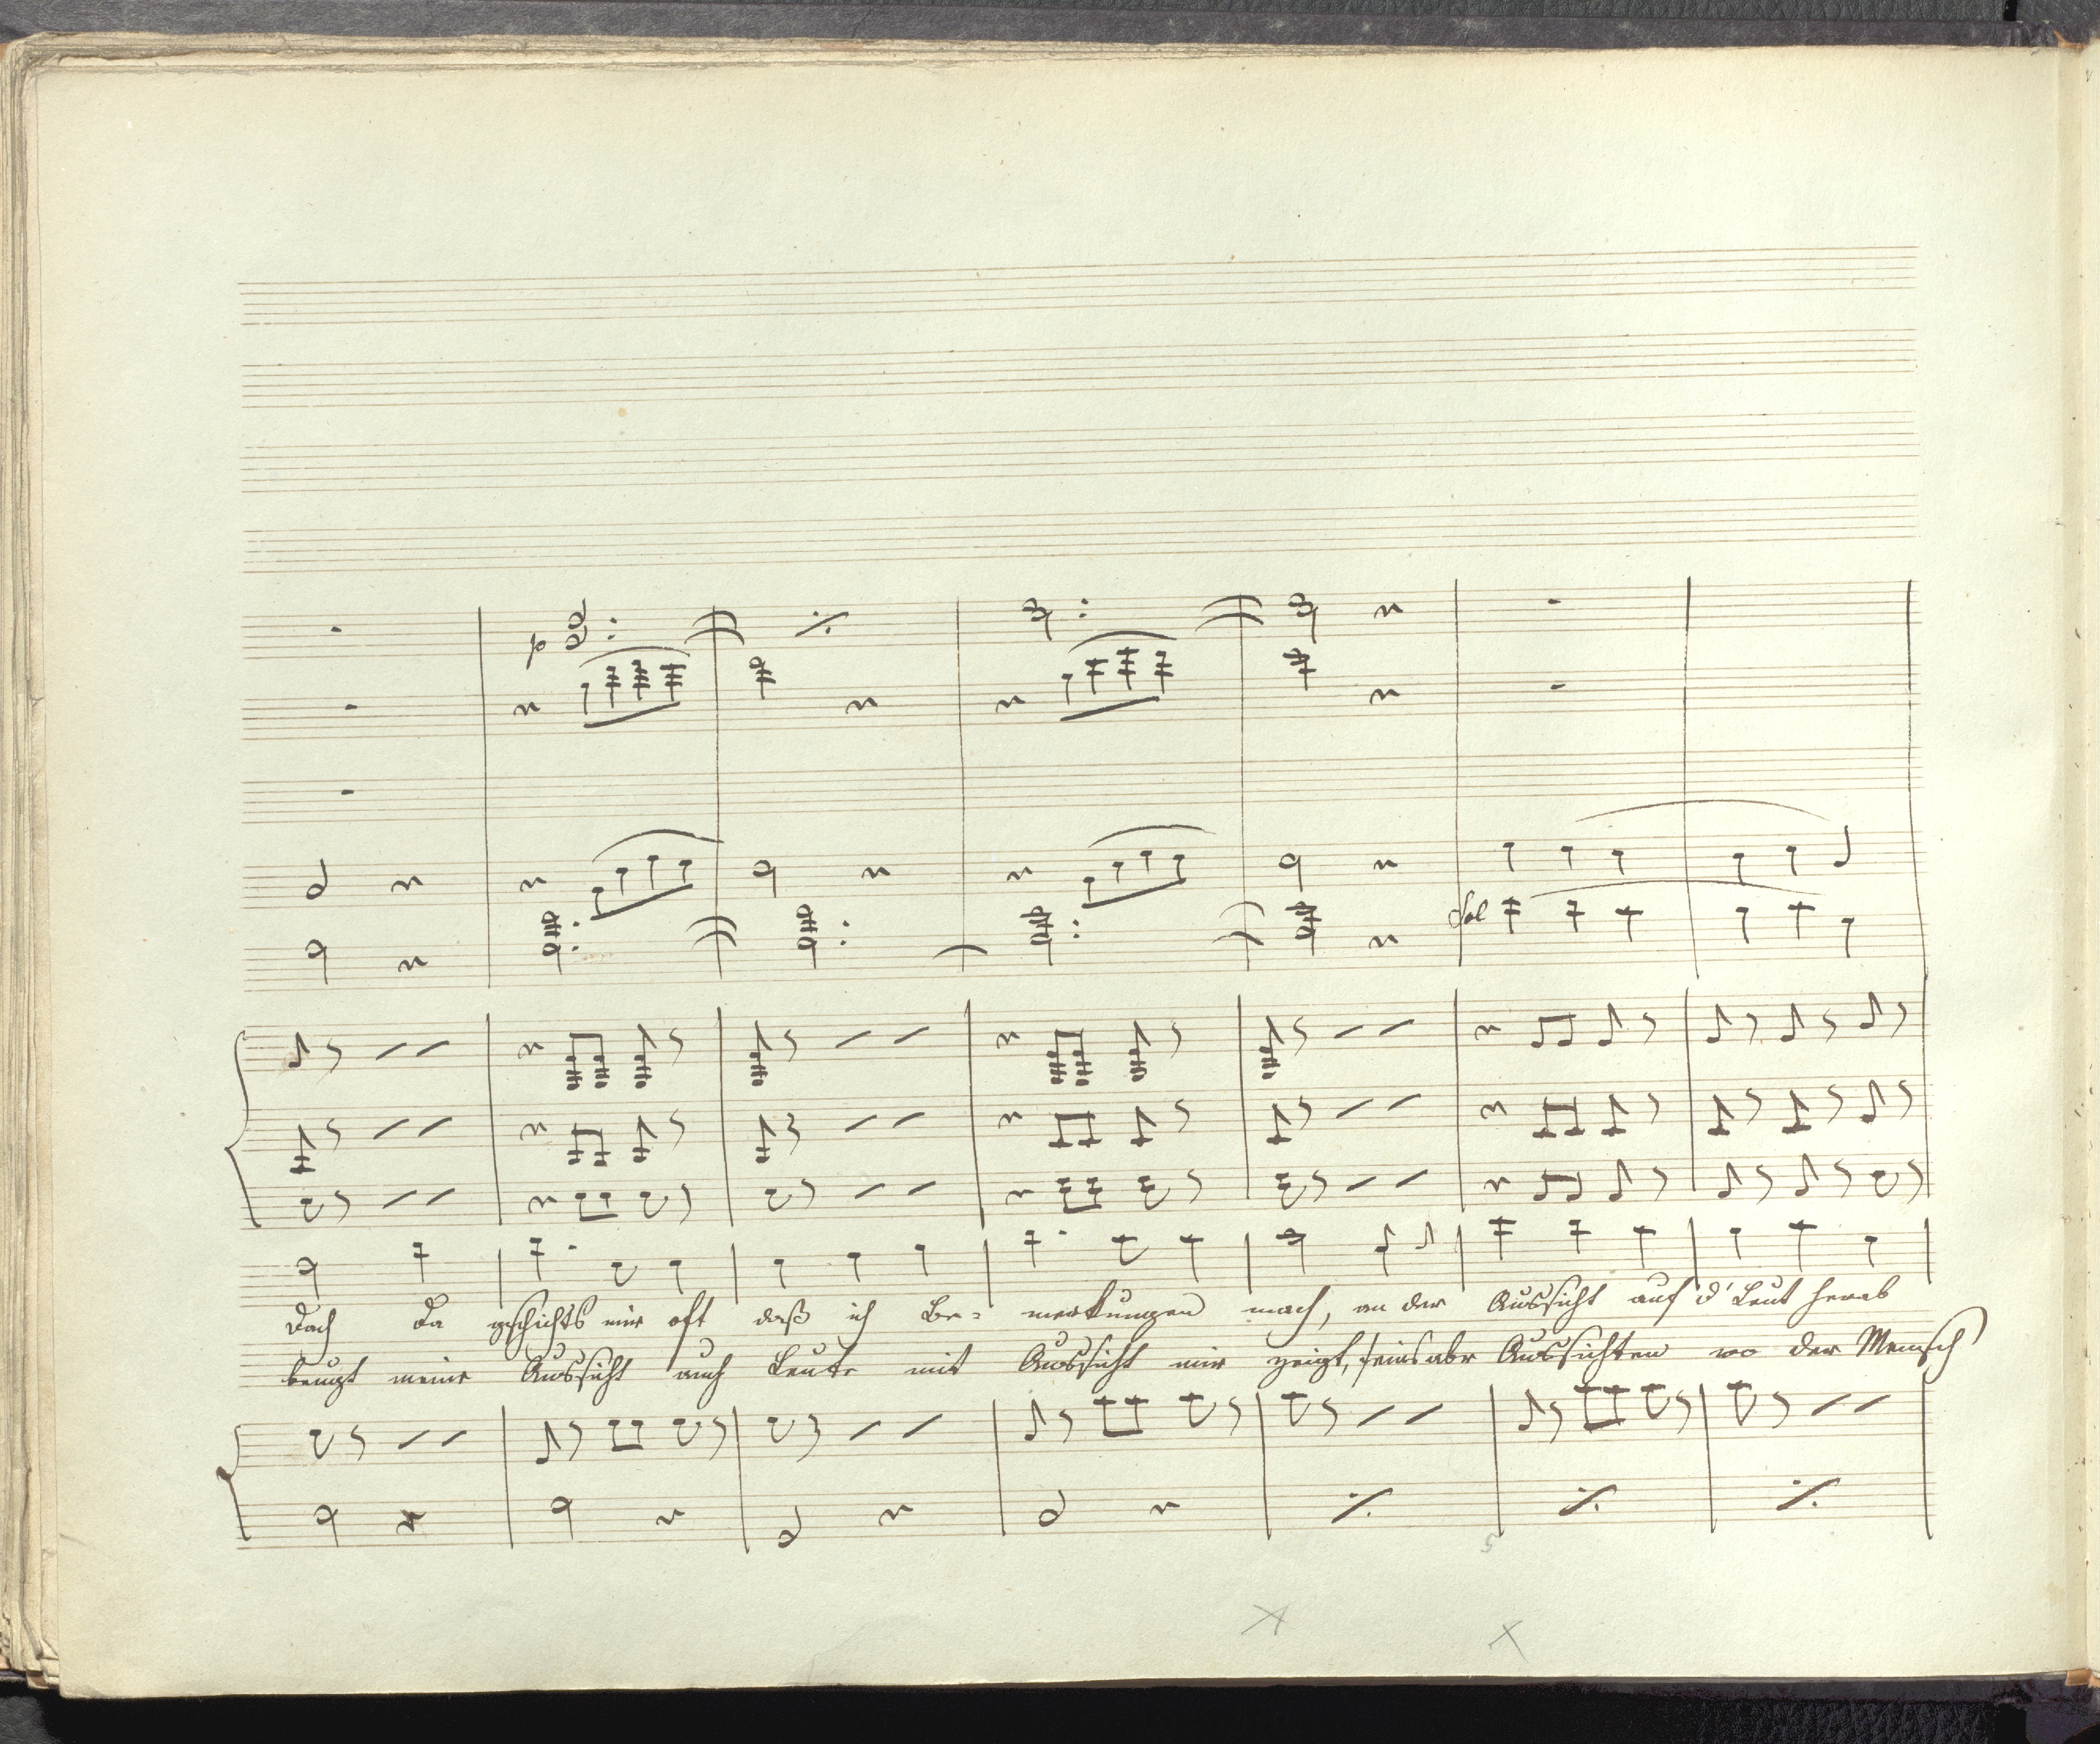 p
Sol
Doch da gschichts mir oft daß ich Be= merkungen mach, an der Aussicht auf d' Leut herab
beugt meine Aussicht auch Leute mit Aussicht mir zeigt, seins abr Aussichten wo der Mensch
5